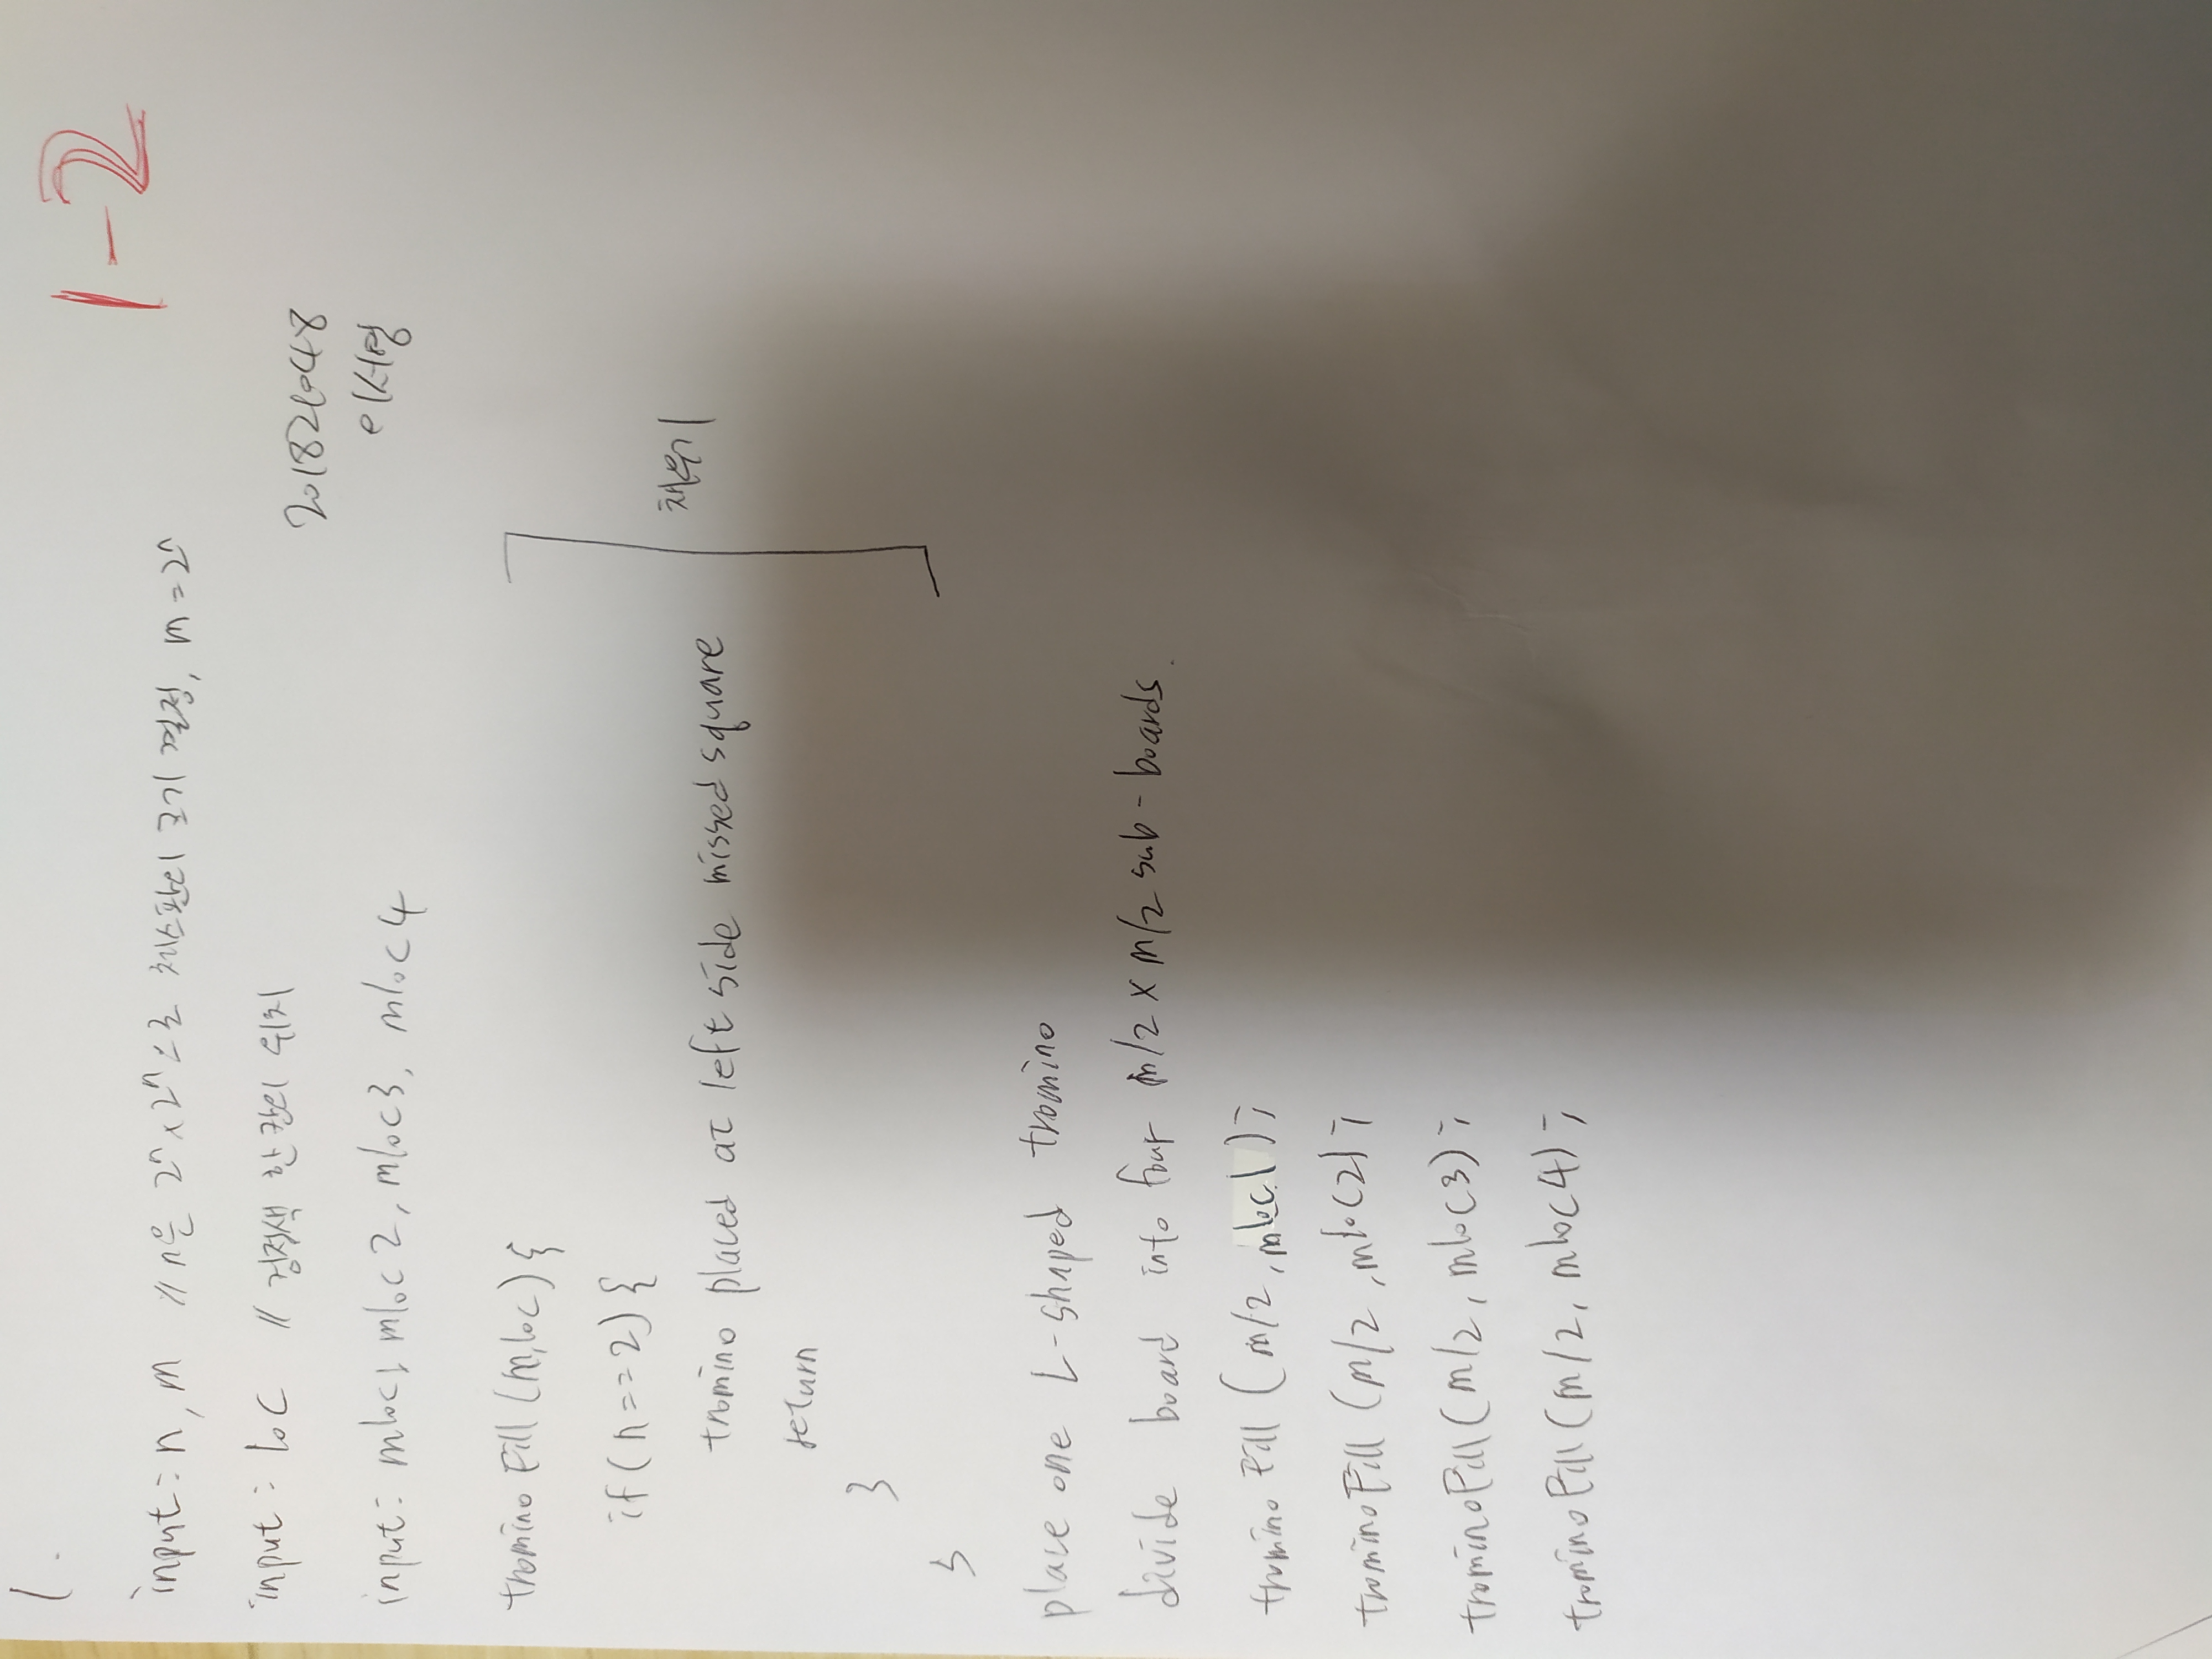 1.
1-2
input: n, m // n은 2ⁿ x 2ⁿ으로 체스판의 크기 결정, m = 2ⁿ
input: loc // 검정색 한 칸의 위치
20182048
이서영
input: mloc1 mloc2, mloc3, mloc4
tromino Fill (m,loc) {
if (n==2) {
tromino placed at left side missed square
채우기
return
}
}
place one L-shaped tromino
divide board into four m/2 x m/2 sub-boards.
tromino Fill (m/2, mloc1);
tromino Fill (m/2, mloc2);
tromino Fill (m/2, mloc3);
tromino Fill (m/2, mloc4);